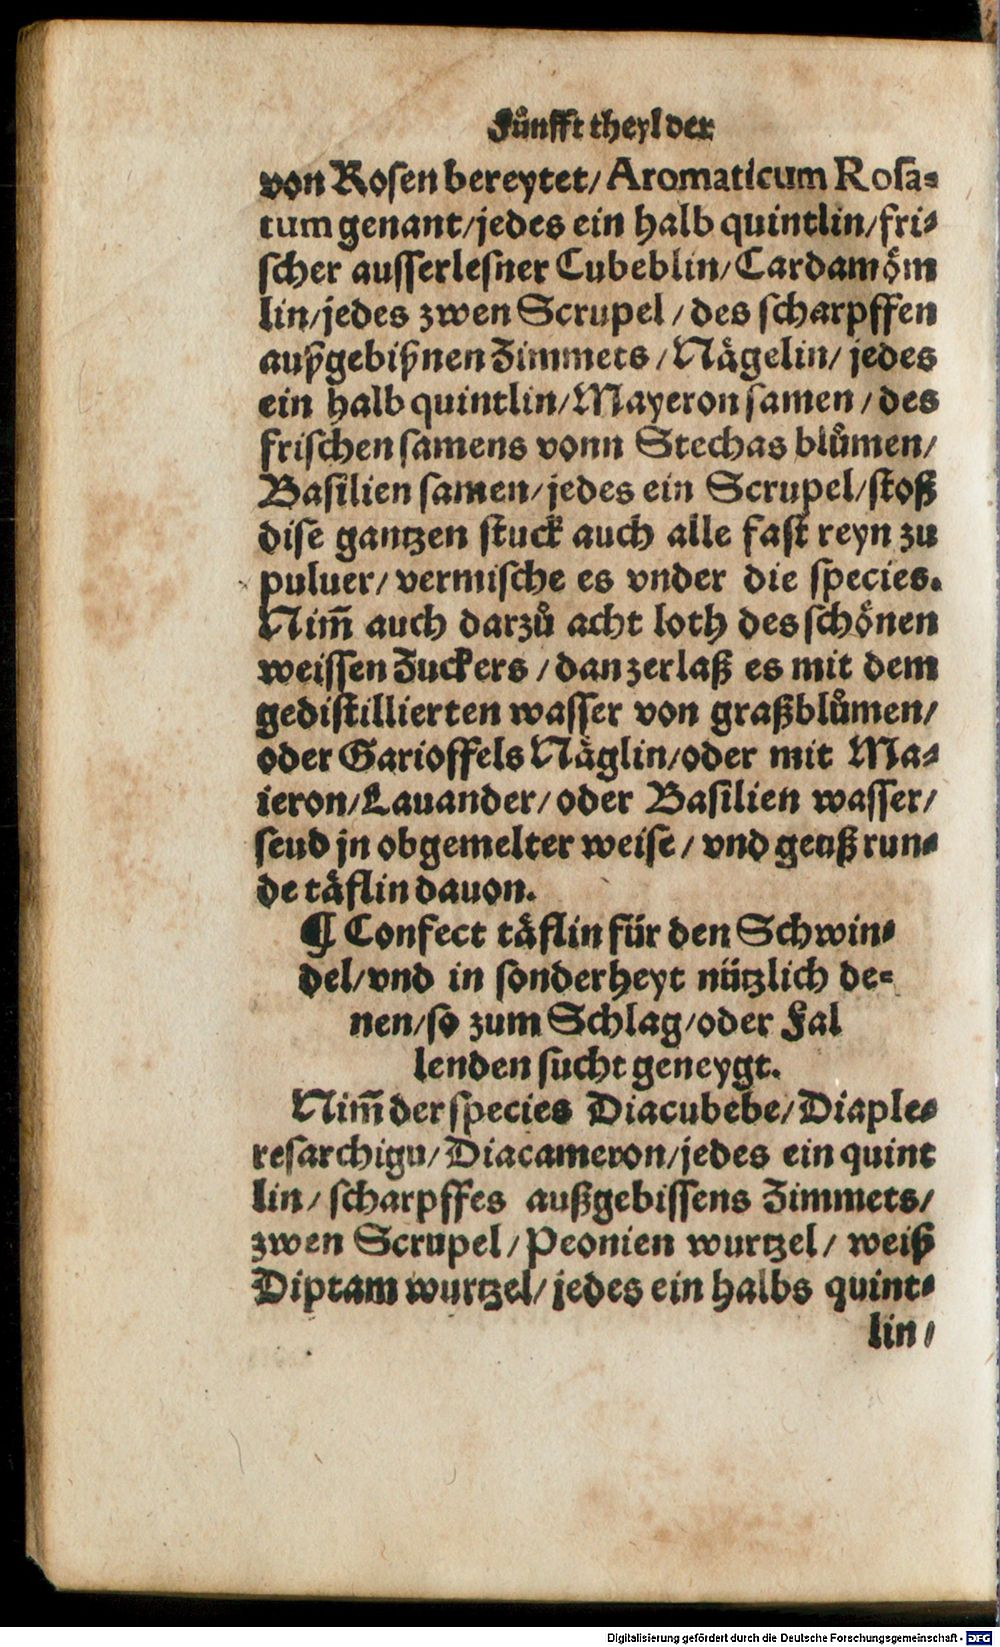 Fuͤnfft theyl der
von Rosen bereytet/ Aromaticum Rosa⸗
tum genant/jedes ein halb quintlin/fri⸗
scher ausserlesner Cubeblin/Cardamoͤm
lin/jedes zwen Scrupel/des scharpffen
außgebißnen Zimmets/Naͤgelin/jedes
ein halb quintlin/Mayeron samen/des
frischen samens vonn Stechas bluͦmen/
Basilien samen/jedes ein Scrupel/stoß
dise gantzen stuck auch alle fast reyn zu
puluer/ vermische es vnder die species.
Nim̃ auch darzuͦ acht loth des schoͤnen
weissen Zuckers/dan zerlaß es mit dem
gedistillierten wasser von graßbluͦmen/
oder Garioffels Naͤglin/oder mit Ma⸗
ieron/Lauander/oder Basilien wasser/
seud jn obgemelter weise/ vnd geuß run⸗
de taͤflin dauon.
¶ Confect taͤflin für den Schwin⸗
del/vnd in sonderheyt nützlich de⸗
nen/so zum Schlag/oder Fal
lenden sucht geneygt.
Nim̃ der species Diacubebe/Diaple⸗
resarchigu/Diacameron/jedes ein quint
lin/ scharpffes außgebissens Zimmets/
zwen Scrupel/Peonien wurtzel/ weiß
Diptam wurtzel/jedes ein halbs quint⸗
lin/
Digitalisierung gefördert durch die Deutsche Forschungsgemeinschaft - DFG